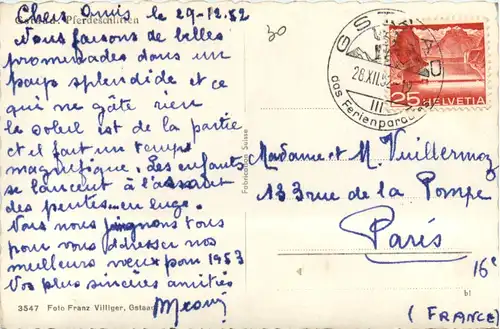 Gstaad. Pferdeschlitten
Chers Amis le 29-12.52
Nous faisons de belles
promenades dans un
pays splendide et ce
qui ne gâte rien
le soleil est de la partie
et il fait un temps
magnifique. Les enfants
se lancent à l'assaut
des pentes en luge.
Nous nous joignons tous
pour vous adresser nos
meilleurs vœux pour 1953
Vos plus sincères amitiés
3547 Foto Franz Villiger, Gstaad
Fabrication Suisse
30
GSTAAD
28.XII.52
III
das Ferienparadies
25 HELVETIA
Madame et M. Vuillermoz
133 rue de la Pompe
Paris
16e
bl
(FRANCE)